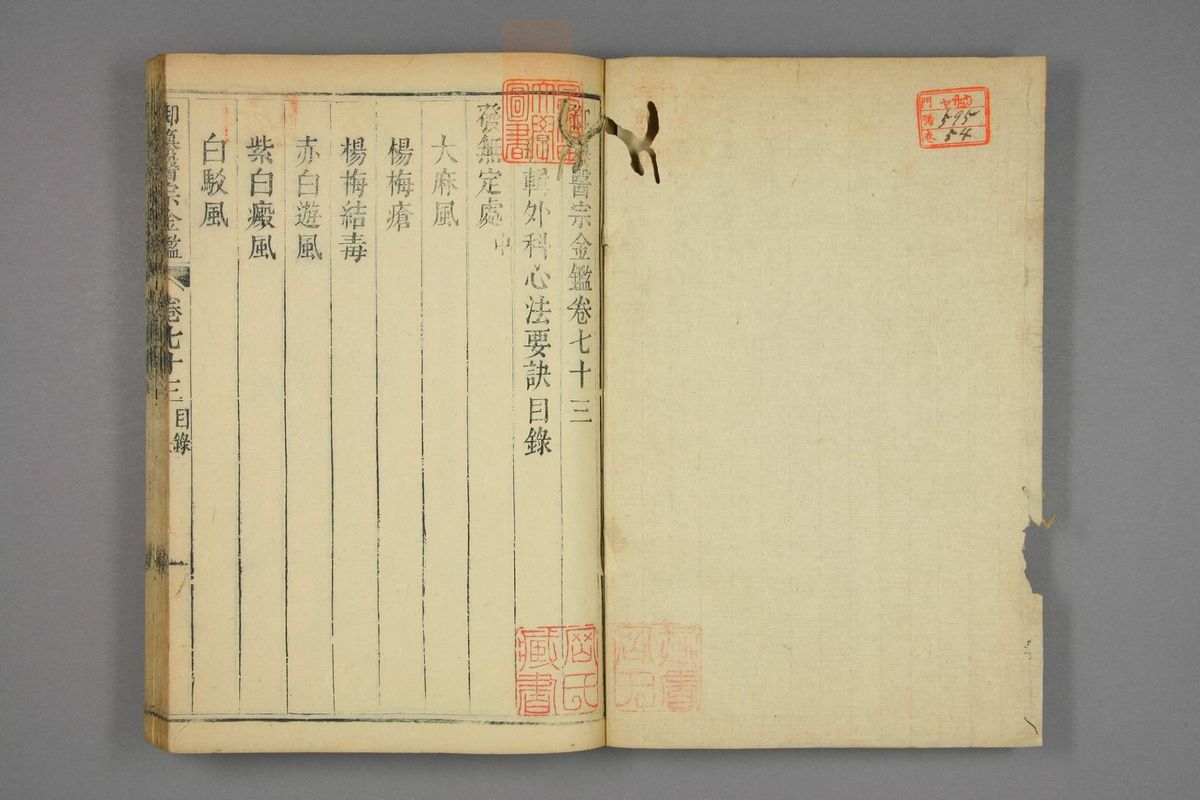 門 ヤ09
號 595
卷 54
醫宗金鑑卷七十三
輯外科心法要訣目錄
發無定處 中
大麻風
楊梅瘡
楊梅結毒
赤白遊風
紫白癜風
白駁風
御纂醫宗金鑑 卷七十三 目錄 一
圖書
藏書